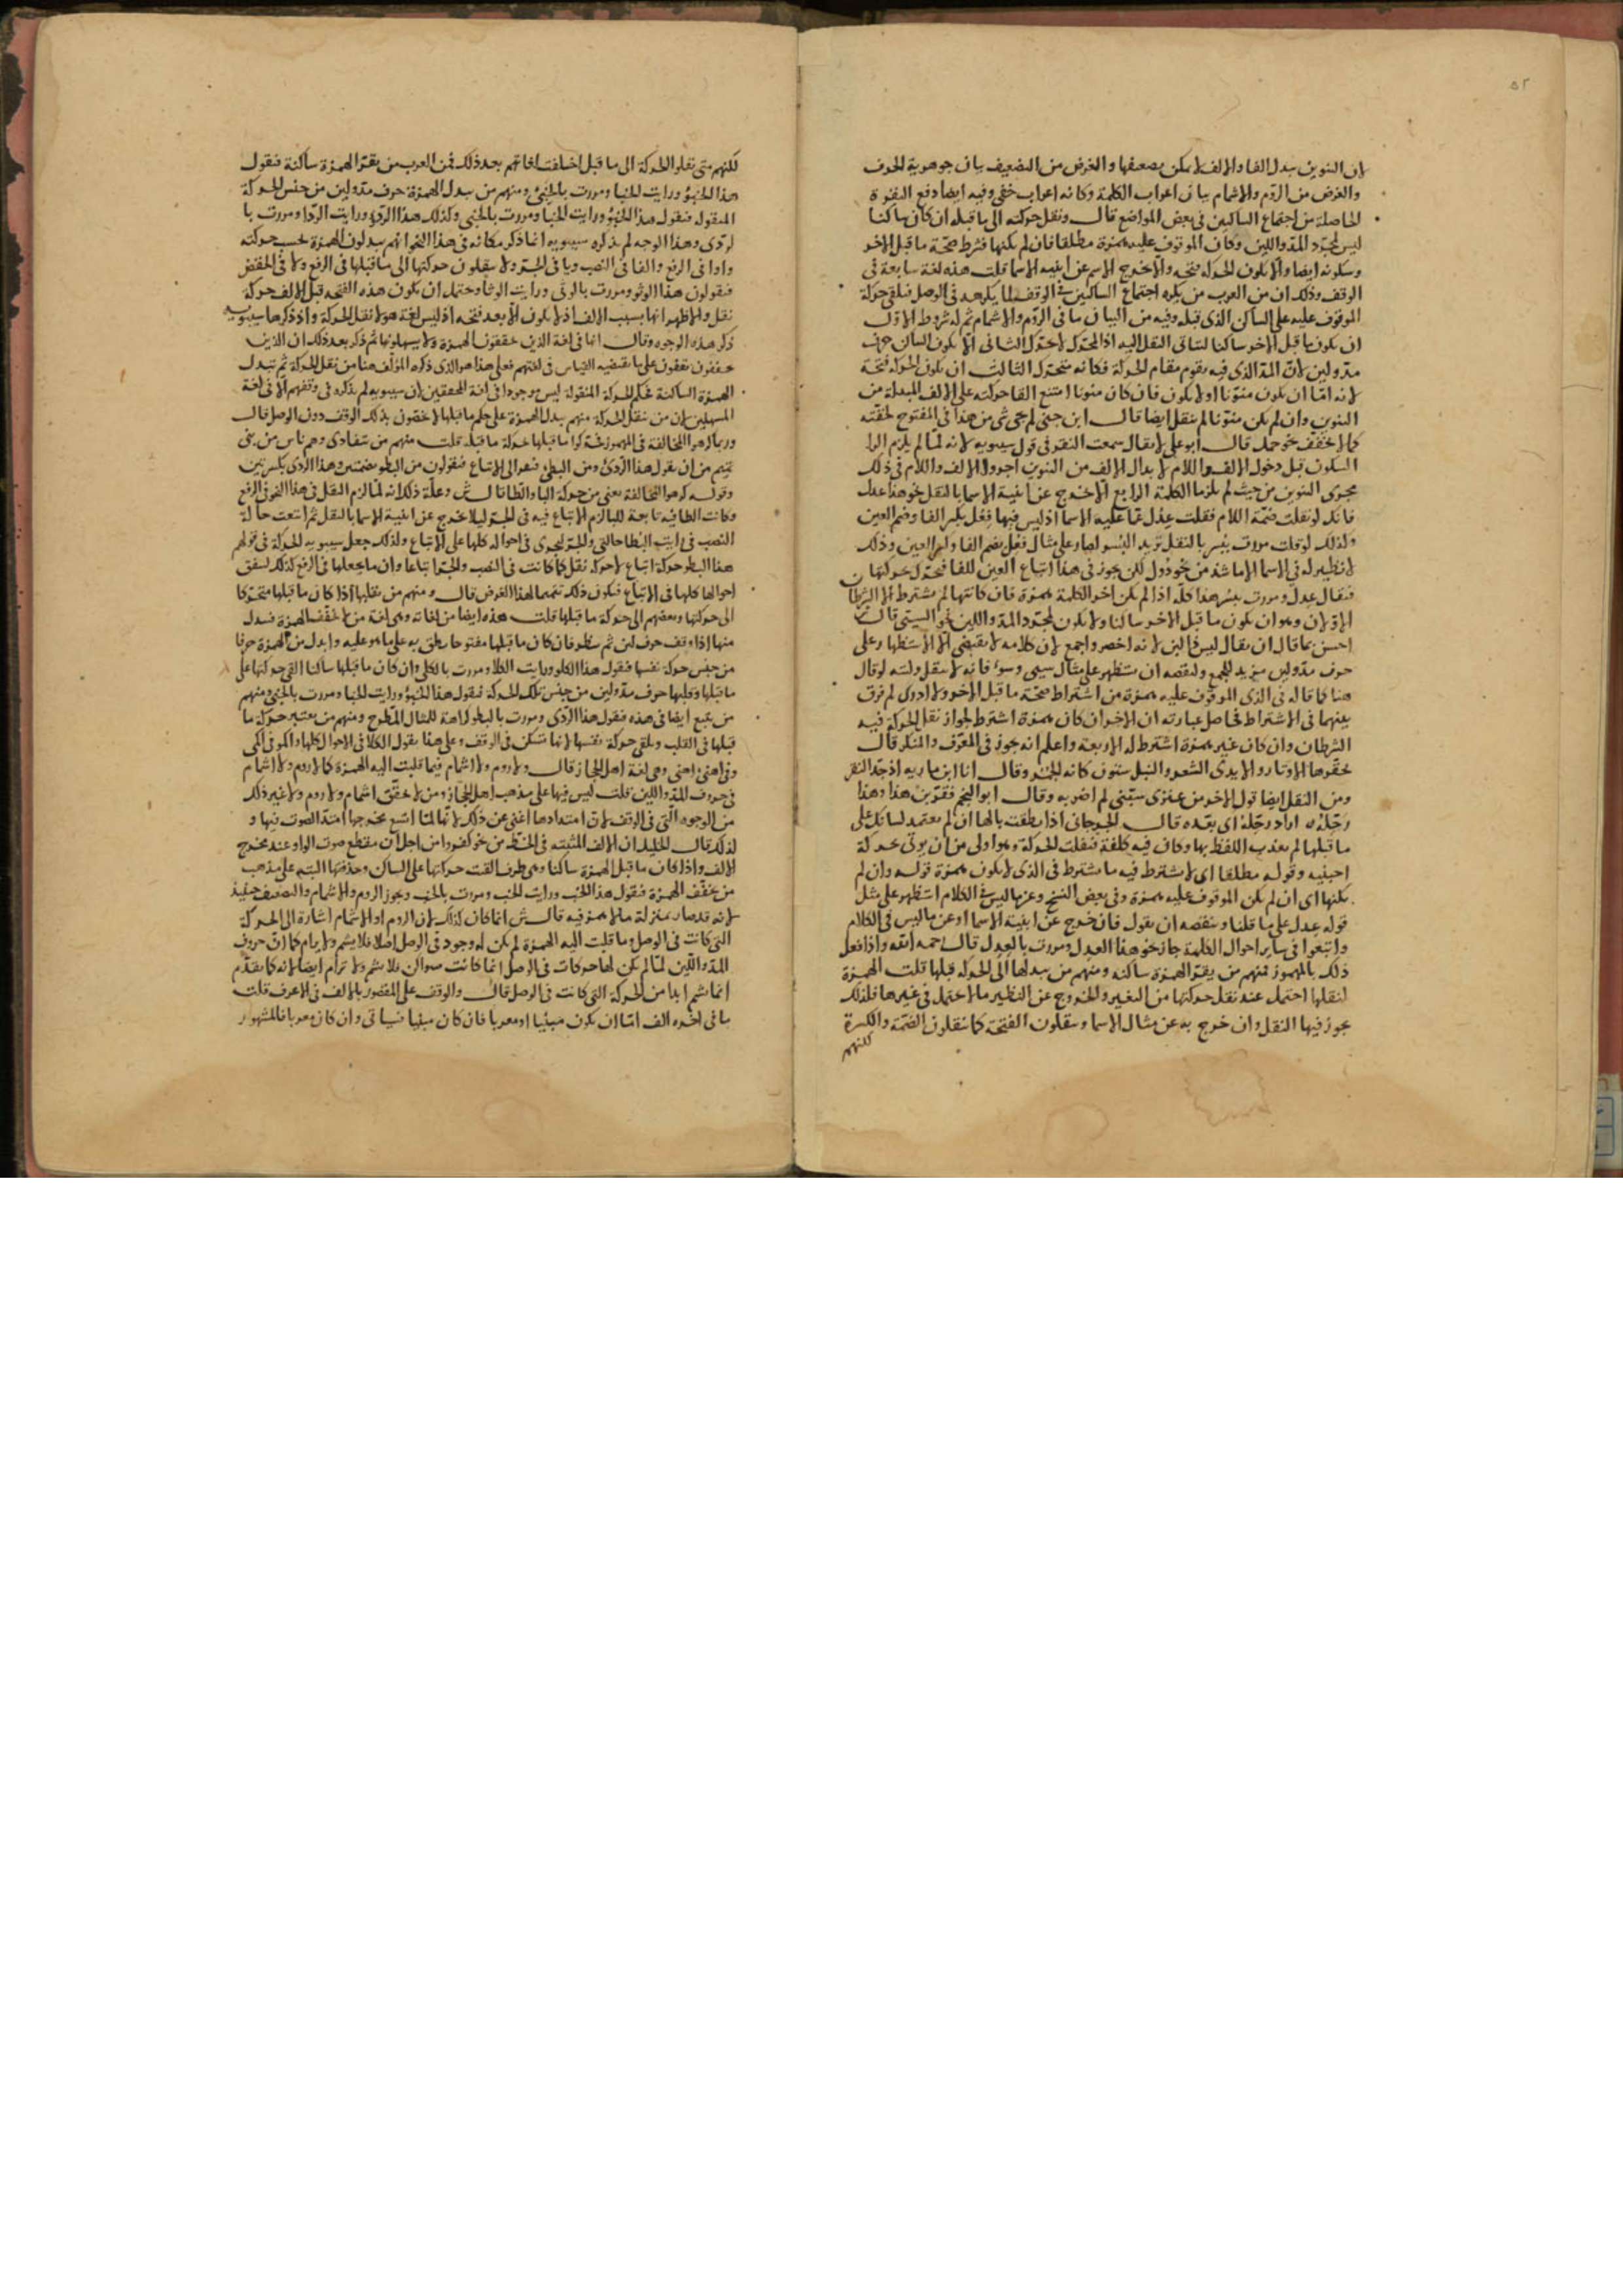 ٥٢
لان التنوين يبدل الفا والالف لا يمكن تضعيفها والغرض من التضعيف بيان جوهرية الحرف
والغرض من الروم والاشمام بيان اعراب الكلمة وكانه اعراب خفي وفيه ايضا دفع النقرة
الحاصلة من اجتماع الساكنين في بعض المواضع قال ونقل حركته الى ما قبله ان كان ساكنا
ليس لمجرد المد واللين وكان الموقوف عليه همزة مطلقا فان لم يكنها فشرط صحة ما قبل الاخر
وسكونه ايضا والا يكون الحركة فتحة والا خروج الاسم عن ابنية الاسما قلت هذه لغة سابعة في
الوقف وذلك ان من العرب من يكره اجتماع الساكنين في الوقف كما يكرهه في الوصل فيلقي حركة
الموقوف عليه على الساكن الذي قبله وفيه من البيان ما في الروم والاشمام ثم له شروط الاول
ان يكون ما قبل الاخر ساكنا ليتاتى النقل اليه اذ المتحرك لا يحرك الثاني الا يكون الساكن حرف
مد ولين لان المد الذي فيه يقوم مقام الحركة فكانه متحرك الثالث ان يكون الحركة فتحة
لانه اما ان يكون منونا او لا يكون فان كان منونا امتنع القا حركته على الالف المبدلة من
التنوين وان لم يكن منونا لم ينقل ايضا قال ابن جني لم يجئ شي من هذا في المفتوح لخفته
كما لا يخفف نحو جمل قال ابو علي لا يقال سمعت النقر في قول سيبويه لانه لما لم يلزم الرا
السكون قبل دخول الالف واللام لابدال الالف من التنوين اجروا الالف واللام في ذلك
مجرى التنوين من حيث لم يلزما الكلمة الرابع الا خروج عن ابنية الاسما بالنقل نحو هذا عدل
فانك لو نقلت ضمة اللام فقلت عدل لما عليه الاسما اذ ليس فيها فعل بكسر الفا وضم العين
وكذلك لو قلت مررت ببسر بالنقل تريد البسر لصار على مثال فعل بضم الفا وكسر العين وذلك
لا نظير له في الاسما الا ما شذ من نحو دئل لكن يجوز في هذا اتباع العين للفا فيحرك بحركتها
فيقال عدل ومررت ببسر هذا كله اذا لم يكن اخر الكلمة همزة فان كانتها لم يشترط الا الشرطان
الاولان وهو ان يكون ما قبل الاخر ساكنا ولا يكون لمجرد المد واللين
احسن ما قال ان يقال ليس ذا لين لانه اخصر واجمع لان كلامه لا يقتضي الا الاستظهار على
حرف مد ولين مزيد للجمع ولنقصه ان يستظهر على مثال سيئ وسوء فانه لا ينقل وليته لو قال
هنا كما قاله في الذي الموقوف عليه همزة من اشتراط صحة ما قبل الاخر ولا ادري لم فرق
بينهما في الاشتراط فحاصل عبارته ان الاخر ان كان همزة اشترط لجواز نقل الحركة فيه
الشرطان وان كان غير همزة اشترط له الاربعة واعلم انه يجوز في المعرف والمنكر قال
تحفزها الاوتار والايدي الشعر والنبل ستون كانه الجمر وقال انا ابن ماوية اذ جد النقر
ومن النقل ايضا قول الاخر من عنزي سبني لم اضربه وقال ابو النجم فقربن هذا وهذا
زحله اراد زحله اي بعده قال الجرجاني اذا نطقت بالها ان لم يعتمد لسانك على
ما قبلها لم يعذب اللفظ بها وكان فيه كلفة فنقلت الحركة وهو اولى من ان يؤتى بحركة
اجنبية وقوله مطلقا اي لا يشترط فيه ما يشترط في الذي لا يكون همزة قوله وان لم
يكنها اي ان لم يكن الموقوف عليه همزة وفي بعض النسخ وعن ما ليس في الكلام استظهر على مثل
قوله عدل على ما قلنا وينقصه ان يقول فان خرج عن ابنية الاسما او عن ما ليس في الكلام
واتبعوا في ساير احوال الكلمة جاز نحو هذا العدل ومررت بالعدل قال رحمه الله واذا فعل
ذلك بالمهموز فمنهم من يقر الهمزة ساكنة ومنهم من يبدلها الى الحركة قبلها قلت الهمزة
لثقلها احتمل عند نقل حركتها من التغيير والخروج عن النظير ما لا يحتمل في غيرها فلذلك
يجوز فيها النقل وان خرج به عن مثال الاسما وينقلون الفتحة كما ينقلون الضمة والكسرة
لكنهم
لكنهم متى نقلوا الحركة الى ما قبل اختلفت لغاتهم بعد ذلك فمن العرب من يقر الهمزة ساكنة فيقول
هذا الخبؤ ورايت الخبا ومررت بالخبئ ومنهم من يبدل الهمزة حرف مد ولين من جنس الحركة
المنقولة فيقول هذا الخبو ورايت الخبا ومررت بالخبي وكذلك هذا الردو ورايت الردا ومررت با
لردي وهذا الوجه لم يذكره سيبويه انما ذكر مكانه في هذا النحو انهم يبدلون الهمزة بحسب حركته
واوا في الرفع والفا في النصب ويا في الجر ولا ينقلون حركتها الى ما قبلها في الرفع ولا في الخفض
فيقولون هذا الوثو ومررت بالوثي ورايت الوثا ويحتمل ان يكون هذه الفتحة قبل الالف حركة
نقل والاظهر انها بسبب الالف اذ لا يكون الا بعد فتحة اذ ليس لغة هؤلا نقل الحركة واذ ذكرها سيبويه
ذكر هذه الوجوه وقال انما في لغة الذين يحققون الهمزة ولا يسهلونها ثم ذكر بعد ذلك ان الذين
يخففون يقفون على ما يقتضيه القياس في لغتهم فعلى هذا هو الذي ذكره المؤلف هنا من نقل الحركة ثم تبدل
الهمزة الساكنة بحكم الحركة المنقولة ليس موجودا في لغة المحققين لان سيبويه لم يذكره في وقفهم الا في لغة
المسهلين لان من ينقل الحركة منهم يبدل الهمزة على حكم ما قبلها لا يخصون بذلك الوقف دون الوصل قال
وربما كرهوا المخالفة في المهموز فحركوا ما قبلها بحركة ما قبله قلت منهم من يتفادى وهم ناس من بني
تميم من ان يقول هذا الردؤ ومن البطئ فيفر الى الاتباع فيقولون من البطؤ بضمتين وهذا الردئ بكسرتين
وقوله كرهوا المخالفة يعني من حركة البا والطا قال ش وعلة ذلك انه لما لزم النقل في هذا النحو في الرفع
وكانت الطا فيه تابعة للبا لزم الاتباع فيه في الجر ليلا يخرج عن ابنية الاسما بالنقل ثم اتبعت حالة
النصب في رايت البطا حالتي والجر ليجري في احواله كلها على الاتباع ولذلك جعل سيبويه الحركة في قولهم
هذا البطؤ حركة اتباع لا حركة نقل كما كانت في النصب والجر اتباعا وان ما يجعلها في الرفع كذلك ليتفق
احوالها كلها في الاتباع فيكون ذلك تتميما لهذا الغرض قال ومنهم من ينقلها اذا كان ما قبلها متحركا
الى حركتها وبعضهم الى حركة ما قبلها قلت هذه ايضا من لغاته وهي لغة من لا يخفف الهمزة فيبدل
منها اذا وقف حرف لين ثم ينظر فان كان ما قبلها مفتوحا ينطق به على ما هو عليه وابدل من الهمزة حرفا
من جنس حركة نفسها فيقول هذا الكلو ورايت الكلا ومررت بالكلي وان كان ما قبلها ساكنا القى حركتها على
ما قبلها وقلبها حرف مد ولين من جنس تلك الحركة فيقول هذا الخبو ورايت الخبا ومررت بالخبي ومنهم
من يتبع ايضا في هذه فيقول هذا الردي ومررت بالبطو كراهة للمثال المطرح ومنهم من يعتبر حركة ما
قبلها في القلب ويلقي حركة نفسها لانها تسكن في الوقف وعلى هذا يقول الكلا في الاحوال كلها واكمو في اكمؤ
وفي اهنئ اهني وهي لغة اهل الحجاز قال ولا روم ولا اشمام فيما قلبت اليه الهمزة كما لا روم ولا اشمام
في حروف المد واللين قلت ليس فيها على مذهب اهل الحجاز ومن لا يحقق اشمام ولا روم ولا غير ذلك
من الوجوه التي في الوقف لان امتدادها اغنى عن ذلك لانها لما اتسع مخرجها امتد الصوت فيها و
لذلك قال الخليل ان الالف المثبتة في الخط من نحو كفروا من اجل ان مقطع صوت الواو عند مخرج
الالف واذا كان ما قبل الهمزة ساكنا وهي طرف القت حركتها على الساكن وحذفتها البتة على مذهب
من يخفف الهمزة فيقول هذا الخب ورايت الخب ومررت بالخب ويجوز الروم والاشمام والتضعيف حينئذ
لانه قد صار بمنزلة ما لا همزة فيه قال ش انما كان كذلك لان الروم او الاشمام اشارة الى الحركة
التي كانت في الوصل وما قلبت اليه الهمزة لم يكن له وجود في الوصل اصلا فلا يشم ولا يرام كما ان حروف
المد واللين لما لم يكن لها حركات في الوصل انما كانت سواكن فلا يشم ولا ترام ايضا لانه كما تقدم
انما يشم ابدا من الحركة التي كانت في الوصل قال والوقف على المقصور بالالف في الاعرف قلت
ما في اخره الف اما ان يكون مبنيا او معربا فان كان مبنيا فسياتي وان كان معربا فالمشهور